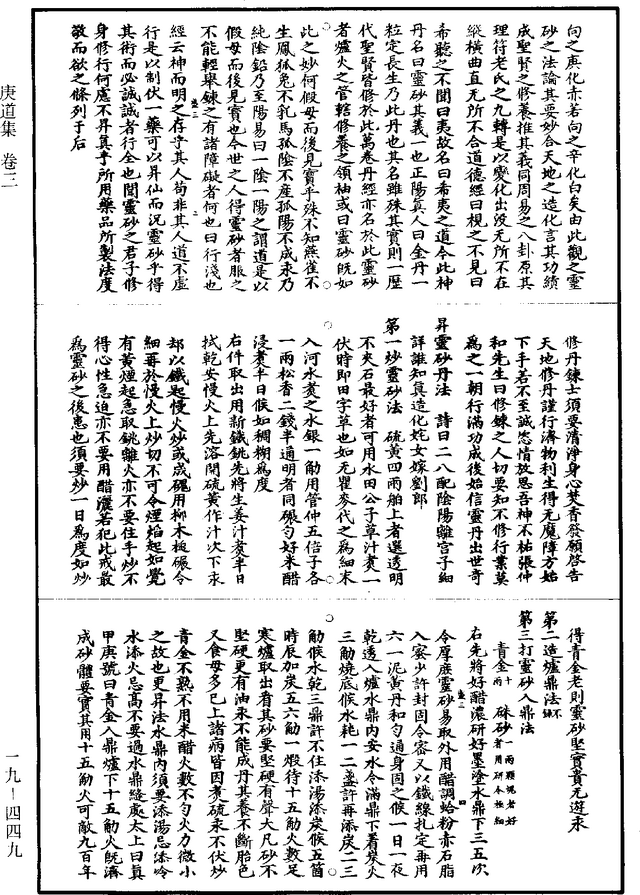 庚道集 卷三
向之庚化亦若向之辛化白矣由此觀之靈
砂之法論其要妙合天地之造化言其功績
成聖賢之修養推其義同周易之八卦原其
理符老氏之九轉是以變化出沒无所不在
縱橫曲直无所不合道德經曰視之不見曰
希聽之不聞曰夷故名曰希夷之道今此神
丹名曰靈砂其義一也正陽真人曰金丹一
粒定長生乃此丹也其名雖殊其實則一歷
代聖賢皆修於此萬卷丹經亦名於此靈砂
者爐火之管轄修養之領袖或曰靈砂旣如
此之妙何假母而後見寶乎殊不知燕雀不
生鳳狐兔不乳馬孤陰不產孤陽不成汞乃
純陰鉛乃至陽易曰一陰一陽之謂道是以
假母而後見寶也今世之人得靈砂者服之
不能輕舉鍊之有諸障礙者何也曰行淺也
經云神而明之存乎其人苟非其人道不虛
行是以制伏一藥可以昇仙而況靈砂乎得
其術而必誠誠者行全也聞靈砂之君子修
身修行何慮不昇真乎所用藥品所製法度
敬而欲之條列于后
修丹鍊士須要清淨身心焚香發願啓告
天地修丹謹行濟物利生得无魔障方始
下手若不至誠恣情故思吾神不祐張仲
和先生曰修鍊之人切要知不修行業莫
爲之一朝行滿功成後始信靈丹出世奇
昇靈砂丹法 詩曰二八配陰陽離宮子細
詳誰知真造化姹女嫁劉郎
第一炒靈砂法 硫黃四兩舶上者選透明
不夾石最好者可用水田公子草汁煮一
伏時卽田字草也如无瞿麥代之爲細末
入河水煮之水銀一觔用管仲五倍子各
一兩松香二錢半通明者同碾勻好米醋
浸煮半日候如稠糊爲度
右件取出用新鐵銚先將生姜汁煮半日
拭乾安慢火上先溶開硫黃作汁次下汞
却以鐵匙慢火炒或成塊用柳木槌碾令
細再於慢火上炒切不可令煙焰起如覺
有黃煙起急取銚離火亦不要住手炒不
得心性急迫亦不要用醋灑若犯此戒最
爲靈砂之後患也須要炒一日爲度如炒
得青金老則靈砂堅實賣无遊汞
第二造爐鼎法
第三打靈砂入鼎法
青金十兩 硃砂一兩顆塊者好者用研令極細
右先將好醋濃研好墨塗水鼎下三五次
令厚庶靈砂易取外用醋調蛤粉赤石脂
入蜜少許封固令密又以鐵線扎定再用
六一泥黃丹和勻通身固之候一日一夜
乾透入爐水鼎內安水令滿鼎下着炭火
三觔燒底候水耗一二盞許再添炭二三
觔候水乾三鼎許不住添湯添炭候五箇
時辰加炭五六觔一煅待十五觔火數足
寒爐取出看其砂要堅硬有聲大凡砂不
堅硬更有油汞不能成丹其養不斷胎色
又食母多已上諸病皆因煮硫汞不伏炒
青金不熟不用米醋火數不勻火力微小
之故也更昇法水鼎內須要添湯忌添冷
水添火忌高不要過水鼎縫處太上曰眞
甲庚號曰青金入鼎爐下十五觔火旣濟
成砂體要實其用十五觔火可敵九百年
一九-四四九